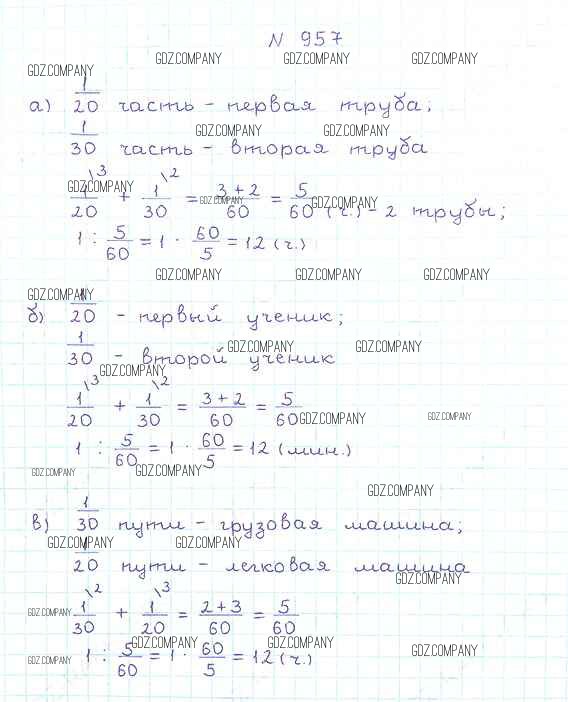 N 957
GDZ.COMPANY GDZ.COMPANY GDZ.COMPANY GDZ.COMPANY
а) 1/20 часть - первая труба;
GDZ.COMPANY GDZ.COMPANY
1/30 часть - вторая труба
GDZ.COMPANY GDZ.COMPANY GDZ.COMPANY
1/20 \3 + 1/30 \2 = 3+2/60 = 5/60 (ч.) - 2 трубы;
1 : 5/60 = 1 · 60/5 = 12 (ч.)
GDZ.COMPANY GDZ.COMPANY GDZ.COMPANY GDZ.COMPANY
б) 1/20 - первый ученик;
GDZ.COMPANY GDZ.COMPANY
1/30 - второй ученик
GDZ.COMPANY
1/20 \3 + 1/30 \2 = 3+2/60 = 5/60
GDZ.COMPANY GDZ.COMPANY
1 : 5/60 = 1 · 60/5 = 12 (мин.)
GDZ.COMPANY GDZ.COMPANY
GDZ.COMPANY
в) 1/30 пути - грузовая машина;
GDZ.COMPANY GDZ.COMPANY
1/20 пути - легковая машина
GDZ.COMPANY
1/30 \2 + 1/20 \3 = 2+3/60 = 5/60
GDZ.COMPANY
GDZ.COMPANY GDZ.COMPANY GDZ.COMPANY
1 : 5/60 = 1 · 60/5 = 12 (ч.)
GDZ.COMPANY